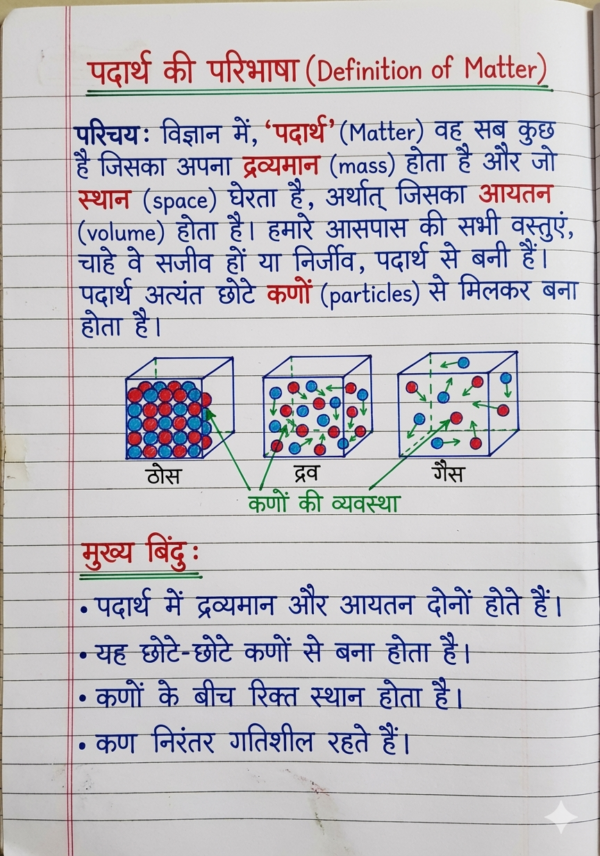 पदार्थ की परिभाषा (Definition of Matter)
परिचय: विज्ञान में, ‘पदार्थ’ (Matter) वह सब कुछ
है जिसका अपना द्रव्यमान (mass) होता है और जो
स्थान (space) घेरता है, अर्थात् जिसका आयतन
(volume) होता है। हमारे आसपास की सभी वस्तुएं,
चाहे वे सजीव हों या निर्जीव, पदार्थ से बनी हैं।
पदार्थ अत्यंत छोटे कणों (particles) से मिलकर बना
होता है।
ठोस द्रव गैस
कणों की व्यवस्था
मुख्य बिंदु:
• पदार्थ में द्रव्यमान और आयतन दोनों होते हैं।
• यह छोटे-छोटे कणों से बना होता है।
• कणों के बीच रिक्त स्थान होता है।
• कण निरंतर गतिशील रहते हैं।